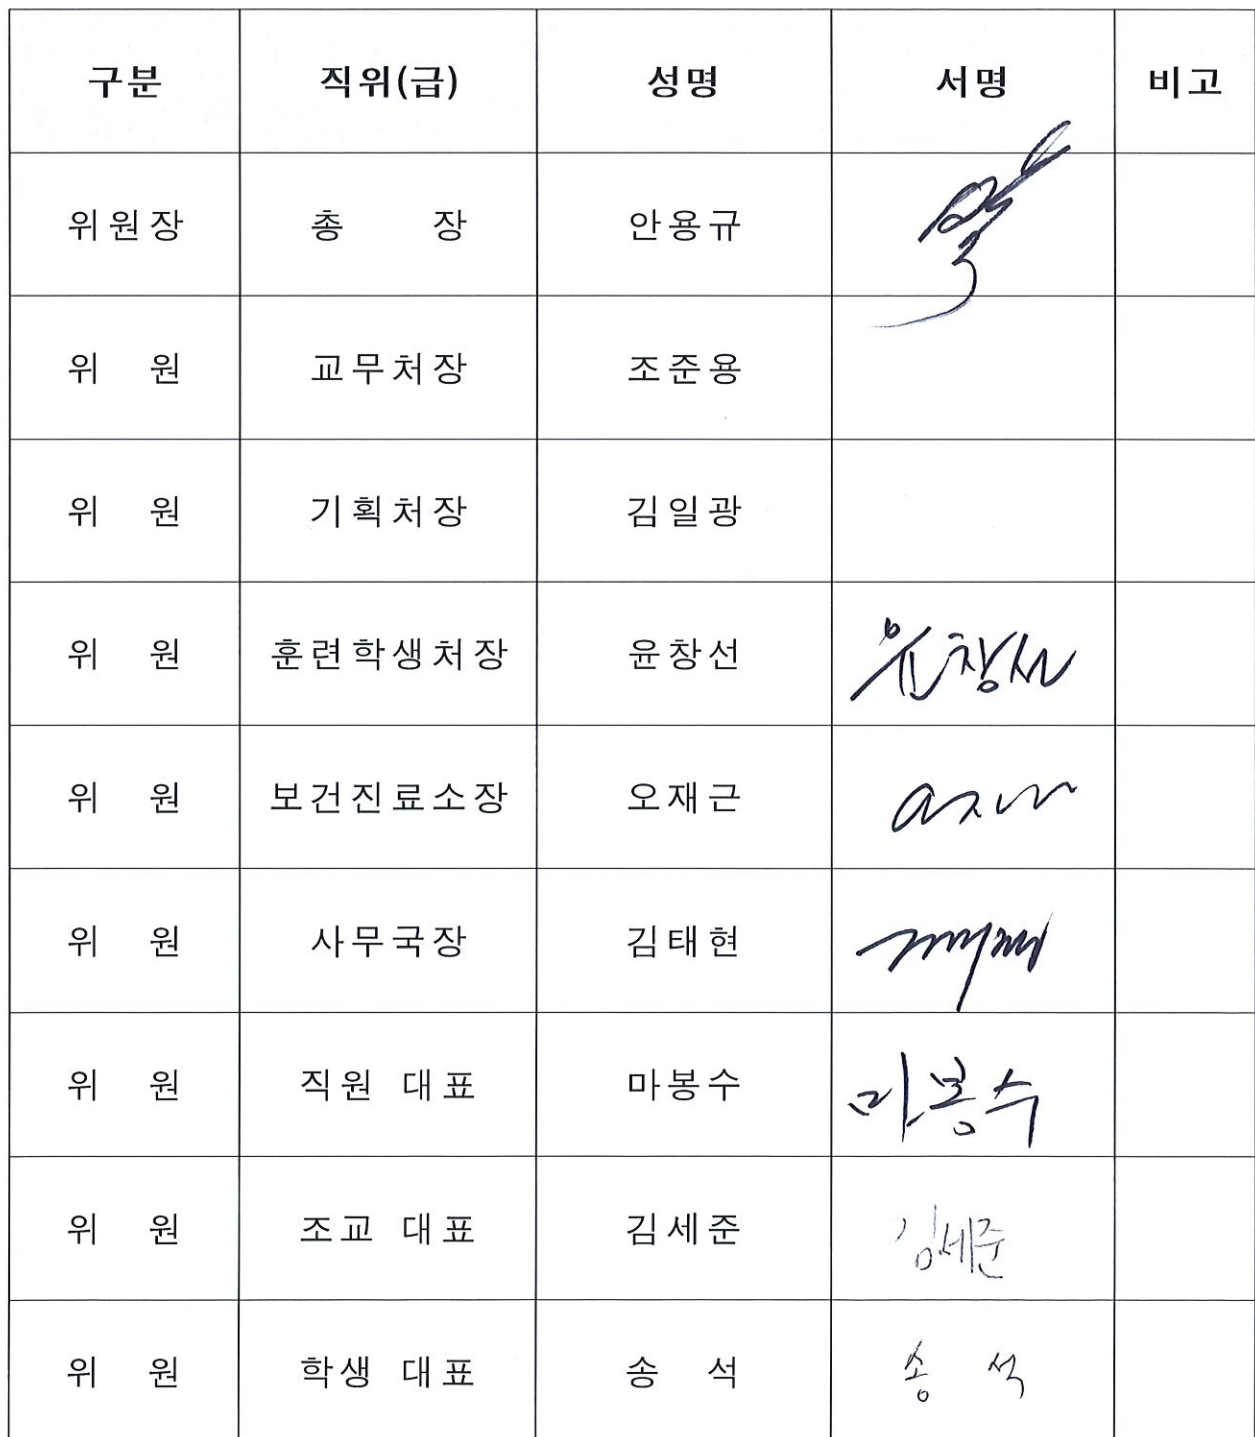 구분 직위(급) 성명 서명 비고
위원장 총 장 안용규
위 원 교무처장 조준용
위 원 기획처장 김일광
위 원 훈련학생처장 윤창선 윤창선
위 원 보건진료소장 오재근
위 원 사무국장 김태현
위 원 직원 대표 마봉수 마봉수
위 원 조교 대표 김세준 김세준
위 원 학생 대표 송 석 송 석